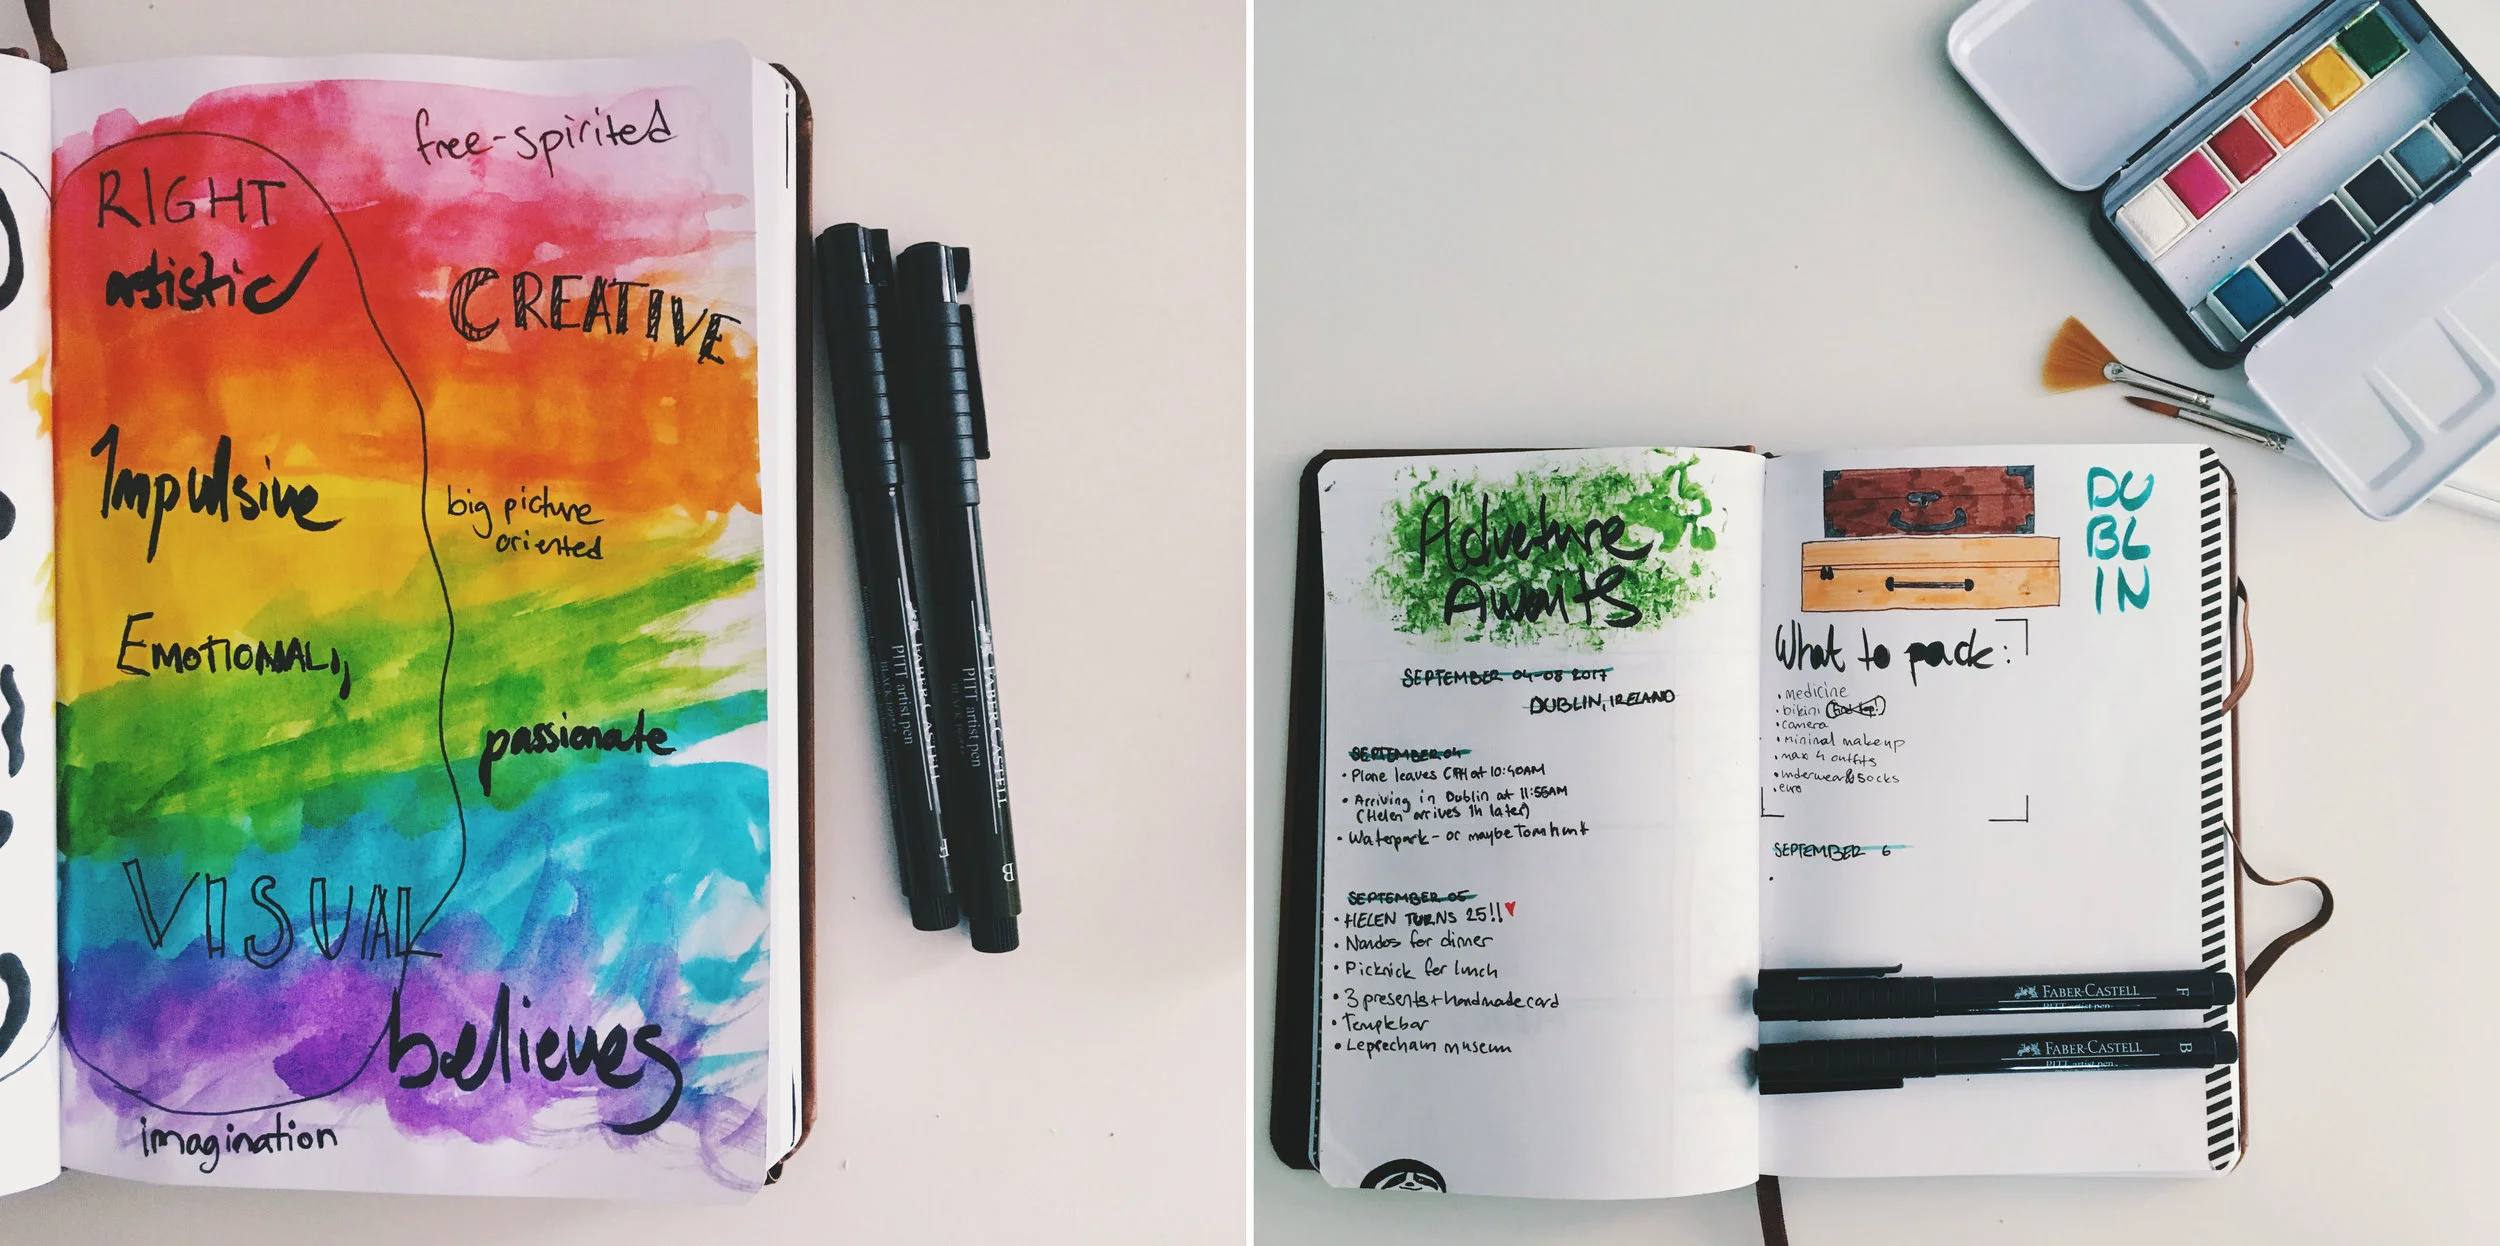 free-spirited
RIGHT
artistic
CREATIVE
Impulsive
big picture
oriented
EMOTIONAL
passionate
VISUAL
believes
imagination
FABER-CASTELL
PITT artist pen
F
FABER-CASTELL
PITT artist pen
B
Adveture
Awaits
SEPTEMBER 04-08 2017
DUBLIN, IRELAND
SEPTEMBER 04
• Plane leaves CPH at 10:40AM
• Arriving in Dublin at 11:55AM
(Helen arrives 1h later)
• Waterpark - or maybe
SEPTEMBER 05
• HELEN TURNS 25!!
• Nandos for dinner
• Picknick for lunch
• 3 presents + handmade card
• Templebar
• Leprechaun museum
DU
BL
IN
What to pack:
• medicine
• bikini
• camera
• minimal makeup
• max 4 outfits
• underwear & socks
• euro
SEPTEMBER 6
•
FABER-CASTELL
PITT artist pen
F
FABER-CASTELL
PITT artist pen
B